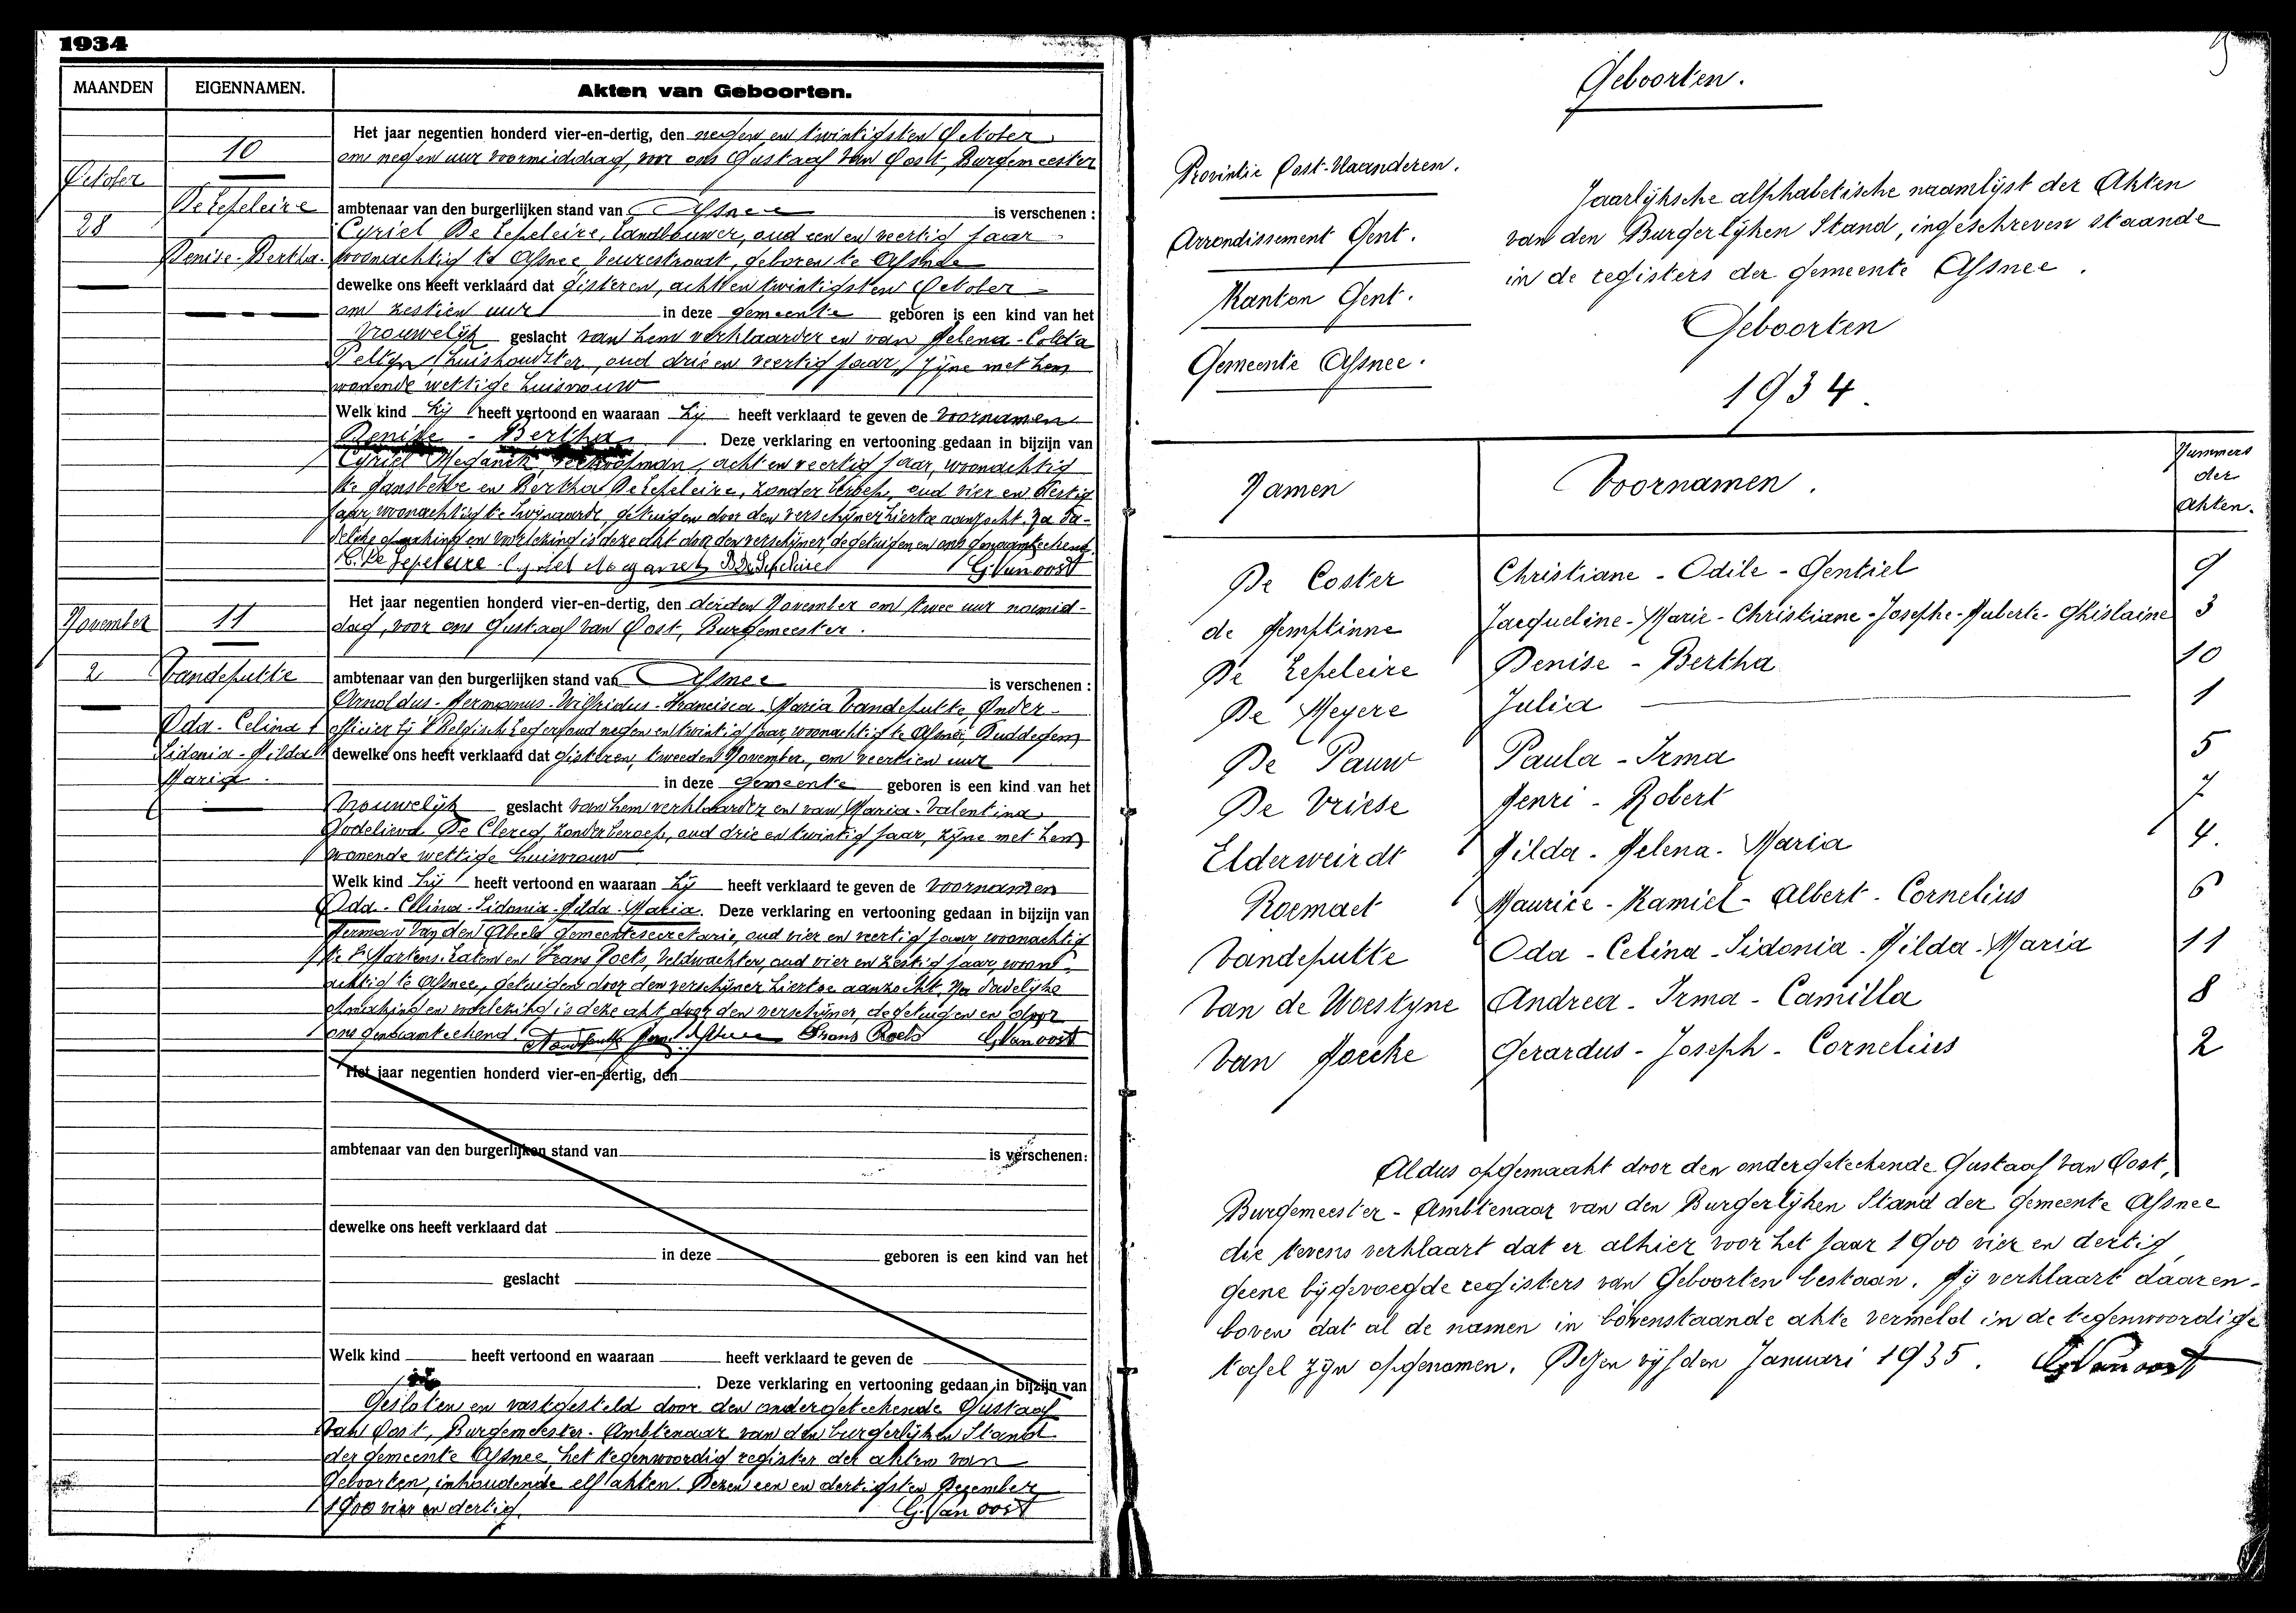 1934
MAANDEN
EIGENNAMEN.
Akten van Geboorten.
October
28
10
De Lepeleire
Denise-Bertha.
Het jaar negentien honderd vier-en-dertig, den negen en twintigsten October
om negen uur voormiddag, voor ons Gustaaf Van Oost, Burgemeester
ambtenaar van den burgerlijken stand van Afsnee is verschenen :
Cyriel De Lepeleire, landbouwer, oud een en veertig jaar
woonachtig te Afsnee, Veurestraat, geboren te Afsnee
dewelke ons heeft verklaard dat gisteren, acht en twintigsten October
om zestien uur in deze gemeente geboren is een kind van het
vrouwelijk geslacht van hem verklaarder en van Helena-Coleta
huishoudster, oud drie en veertig jaar, zijne met hem
wonende wettige huisvrouw
Welk kind hij heeft vertoond en waaraan hij heeft verklaard te geven de voornamen
Denise - Bertha. Deze verklaring en vertooning gedaan in bijzijn van
Cyriel Meganck, acht en veertig jaar, woonachtig
te Gansbeke en Bertha De Lepeleire, zonder beroep, oud vier en dertig
jaar, woonachtig te Zwijnaarde, getuigen door den verschijner hiertoe aanzocht. Na da-
delijke opmaking en voorlezing is deze akt door den verschijner, de getuigen en ons genaamteekend.
C. De Lepeleire Cyriel Meganck B De Lepeleire G. Van oost
November
2
11
Vandeputte
Oda - Celina
Sidonia - Hilda
Maria.
Het jaar negentien honderd vier-en-dertig, den derden November om twee uur namid-
dag, voor ons Gustaaf Van Oost, Burgemeester.
ambtenaar van den burgerlijken stand van Afsnee is verschenen :
Arnoldus-Hermanus-Wilfridus-Francisca-Maria Vandeputte, Onder-
officier bij 't Belgisch Leger, oud negen en twintig jaar, woonachtig te Afsnee, Duddegem
dewelke ons heeft verklaard dat gisteren, tweeden November, om veertien uur
in deze gemeente geboren is een kind van het
vrouwelijk geslacht van hem verklaarder en van Maria-Valentina
Godelieva De Clercq, zonder beroep, oud drie en twintig jaar, zijne met hem
wonende wettige huisvrouw
Welk kind hij heeft vertoond en waaraan hij heeft verklaard te geven de voornamen
Oda - Celina - Sidonia - Hilda - Maria. Deze verklaring en vertooning gedaan in bijzijn van
Herman Van den Abeele gemeentesecretaris, oud vier en veertig jaar, woonachtig
te St Martens-Latem en Frans Roels, veldwachter, oud vier en zestig jaar, woon-
achtig te Afsnee, getuigen door den verschijner hiertoe aanzocht. Na dadelijke
opmaking en voorlezing is deze akt door den verschijner, de getuigen en door
ons genaamteekend. Frans Roels G. Van oost
Het jaar negentien honderd vier-en-dertig, den
ambtenaar van den burgerlijken stand van is verschenen:
dewelke ons heeft verklaard dat
in deze geboren is een kind van het
geslacht
Welk kind heeft vertoond en waaraan heeft verklaard te geven de
. Deze verklaring en vertooning gedaan in bijzijn van
Gesloten en vastgesteld door den ondergeteekende Gustaaf
Van Oost, Burgemeester-Ambtenaar van den burgerlijken Stand
der gemeente Afsnee, het tegenwoordig register der akten van
Geboorten, inhoudende elf akten. Dezen een en dertigsten December
1900 vier en dertig.
G. Van oost
9
Geboorten.
Provintie Oost-Vlaanderen.
Arrondissement Gent.
Kanton Gent.
Gemeente Afsnee.
Jaarlijksche alphabetische naamlijst der Akten
van den Burgerlijken Stand, ingeschreven staande
in de registers der gemeente Afsnee.
Geboorten
1934.
Namen
Voornamen.
Nummers
der
Akten.
De Coster Christiane - Odile - Gentiel 9
de Hemptinne Jacqueline - Marie - Christiane - Josephe - Huberte - Ghislaine 3
De Lepeleire Denise - Bertha 10
De Meyere Julia 1
De Pauw Paula - Irma 5
De Vriese Henri - Robert 7
Elderweirdt Hilda - Helena - Maria 4.
Roemaet Maurice - Kamiel - Albert - Cornelius 6
Vandeputte Oda - Celina - Sidonia - Hilda - Maria 11
Van de Woestyne Andrea - Irma - Camilla 8
Van Hoecke Gerardus - Joseph - Cornelius 2
Aldus opgemaakt door den ondergeteekende Gustaaf Van Oost,
Burgemeester - Ambtenaar van den Burgerlijken Stand der gemeente Afsnee
die tevens verklaart dat er alhier voor het jaar 1900 vier en dertig
geene bijgevoegde registers van Geboorten bestaan. Hij verklaart daaren-
boven dat al de namen in bovenstaande akte vermeld in de tegenwoordige
tafel zijn opgenomen. Dezen vijfden Januari 1935. G. Van oost